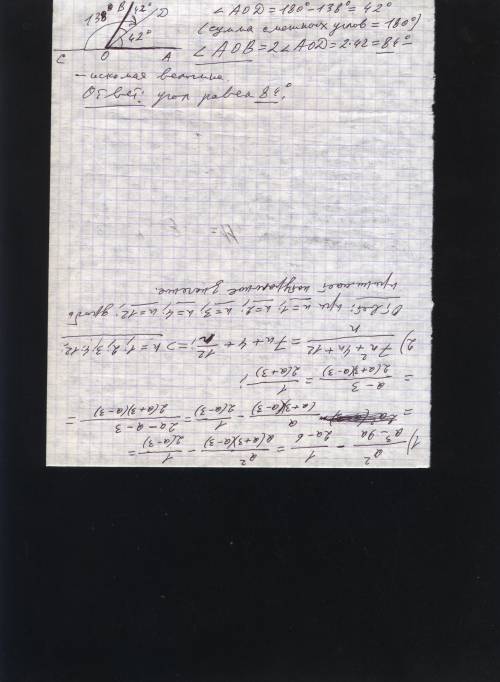 138° B 42° D
42°
C O A
∠AOD = 180° - 138° = 42°
(сумма смежных углов = 180°)
∠AOB = 2∠AOD = 2·42 = 84° -
- искомая величина.
Ответ: угол равен 84°.
1) a²/(a³-9a) - 1/(2a-6) = a²/(a(a+3)(a-3)) - 1/(2(a-3)) =
= a/((a+3)(a-3)) - 1/(2(a-3)) = (2a-a-3)/(2(a+3)(a-3)) =
= (a-3)/(2(a+3)(a-3)) = 1/(2(a+3));
2) (7n²+4n+12)/n = 7n+4+12/n; => n = 1, 2, 3, 4, 12,
Ответ: при n=1; n=2; n=3; n=4; n=12; дробь
принимает натуральное значение.